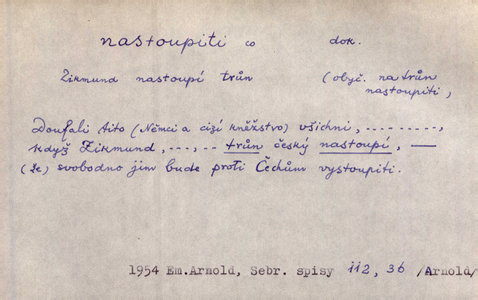 nastoupiti co dok.
Zikmund nastoupí trůn (obyč. na trůn
nastoupiti,
Doufali tito (Němci a cizí kněžstvo) všichni, - - - - - - - -,
když Zikmund, - - -, - - trůn český nastoupí, —
(že) svobodno jim bude proti Čechům vystoupiti.
1954 Em.Arnold, Sebr. spisy 112, 36 /Arnold/